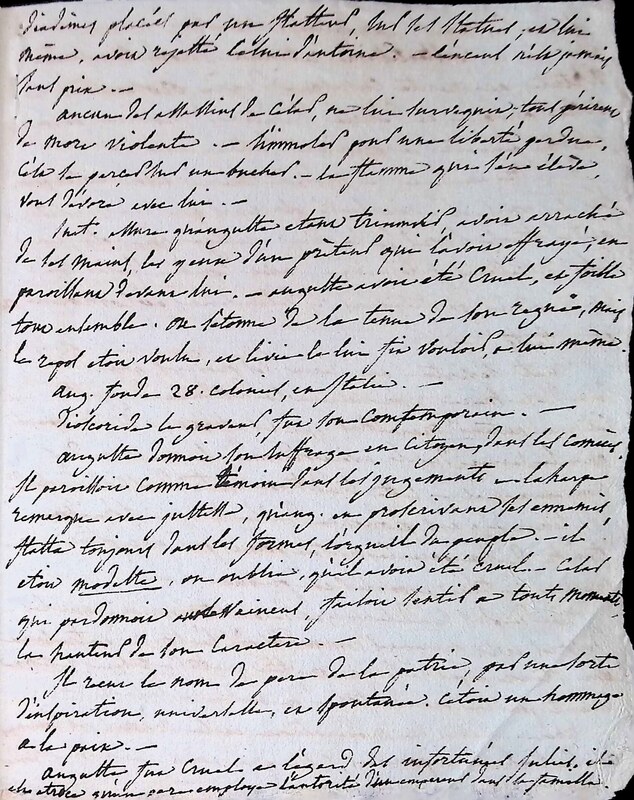 diadêmes placées par un flatteur, sur ses statues, et lui
même, avoit rejetté celui d'antoine. — l'encens n'est jamais
sans prix. —
aucun des assassins de César, ne lui survequit, tous périrent
de mort violente. — s'immoler pour une liberté perdue,
c'est se percer sur un bucher. — la flamme qui s'en élève,
vous dévore avec lui. —
Suet. assure qu'auguste etant triumvir, avoit arraché
de ses mains, les yeux d'un préteur qui l'avoit effrayé, en
paroissant devant lui. — auguste avoit été cruel, et foible
tout ensemble. on s'étonne de la tenue de son regne, mais
le repos etoit voulu, et Livie le lui fit vouloir, a lui même.
aug. fonda 28. colonies, en Italie. —
Dioscoride le graveur, fut son contemporain. —
auguste donnoit son suffrage en citoyen, dans les comices,
Il paroissoit comme témoin dans les jugements — laharpe
remarque avec justesse, qu'aug. en proscrivant ses ennemis
flatta toujours dans les formes, l'orgueil du peuple. — il
etoit modeste, on oublia, qu'il avoit été cruel — César
qui pardonnoit aux vaincus, faisoit sentir a touts moments,
la hauteur de son caractere. —
Il recut le nom de pere de la patrie, par une sorte
d'inspiration, universelle, et spontanée. C'étoit un hommage
a la paix. —
auguste, fut cruel a l'égard des infortunées Julies, il
employa l'autorité d'un empereur dans sa famille.